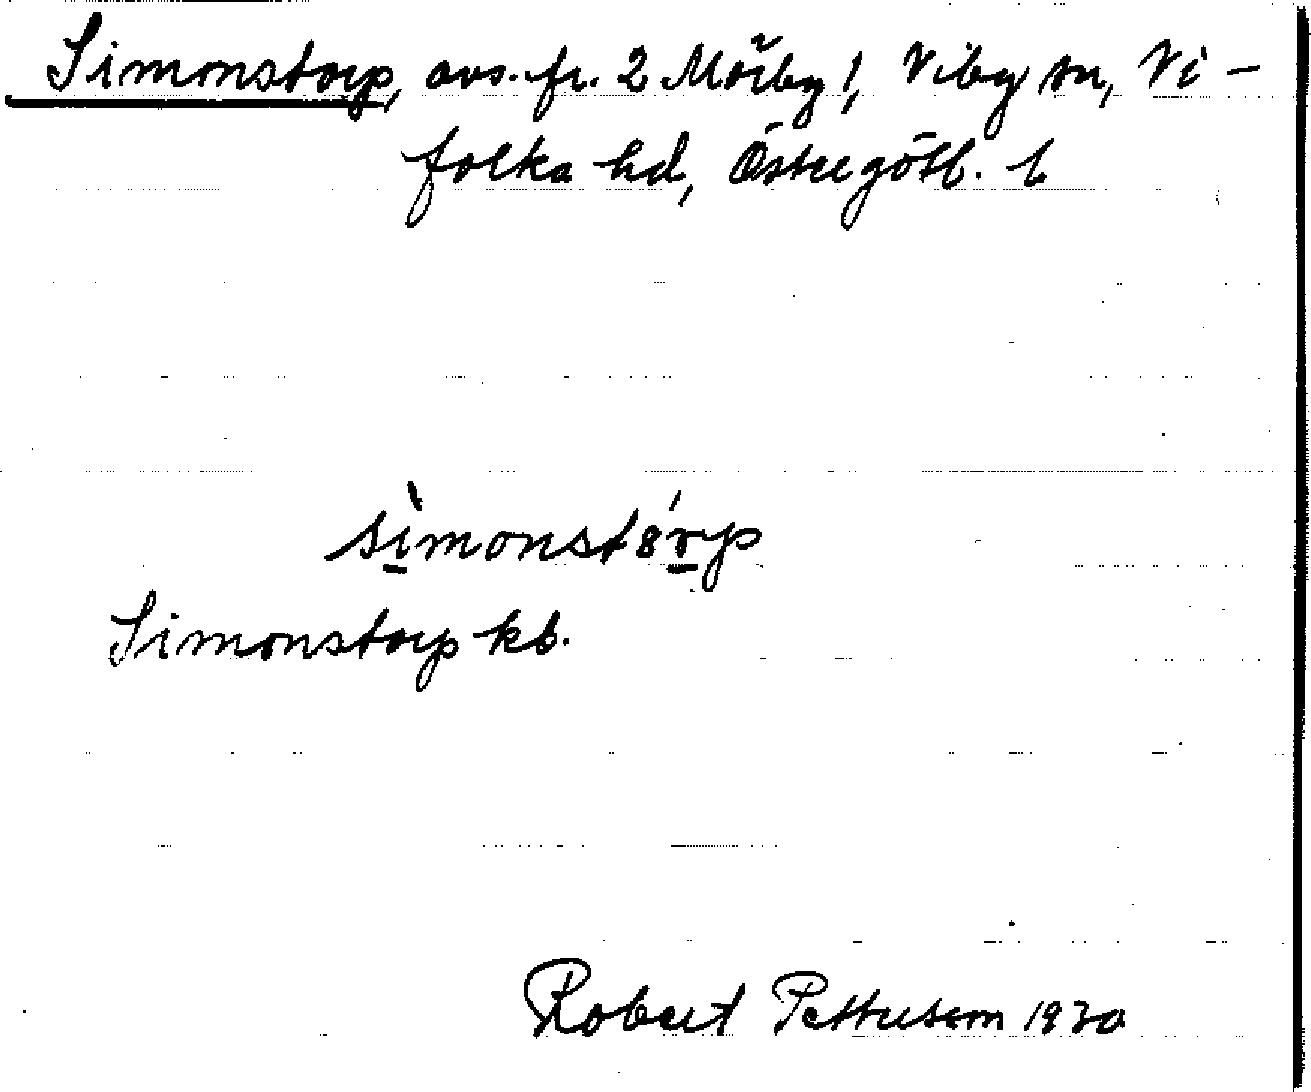 Simonstorp, avs. fr. 2 Mörby!, Viby sn, Vi-
folka hd, Östergötl. l
sìmonstórp
Simonstorp kb.
Robert Pettersson 1930